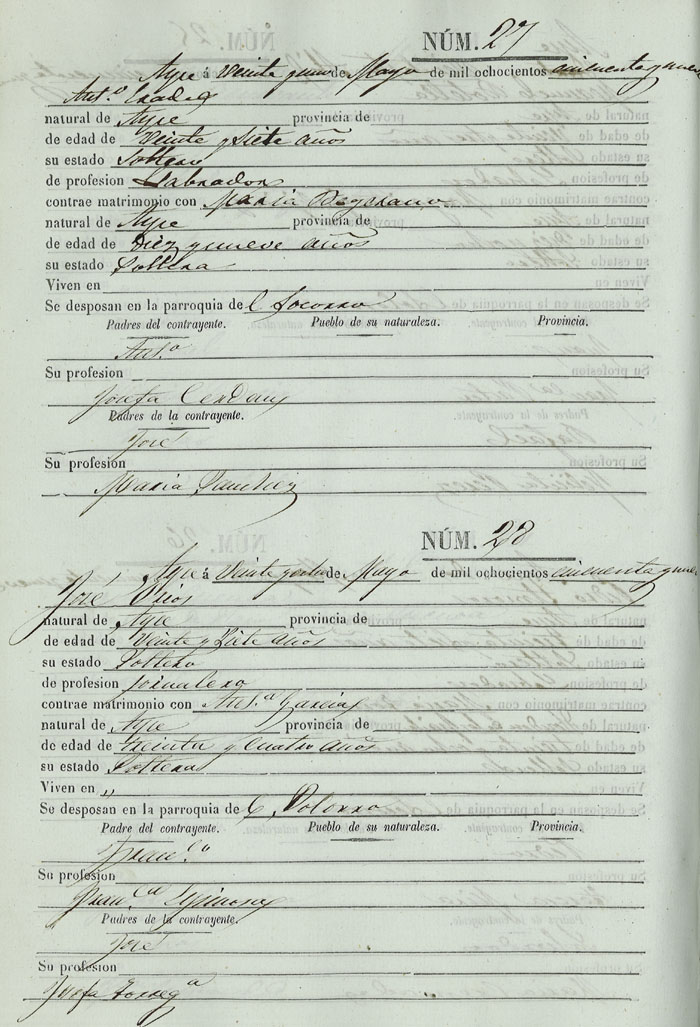 NÚM. 27
Aspe á veinte y uno de Mayo de mil ochocientos cincuenta y nueve
Ant.º
natural de Aspe provincia de
de edad de Veinte y Siete años
su estado Soltero
de profesion Labrador
contrae matrimonio con Maria
natural de Aspe provincia de
de edad de Diez y nueve años
su estado Soltera
Viven en
Se desposan en la parroquia de l Socorro
Padres del contrayente. Pueblo de su naturaleza. Provincia.
Ant.º
Su profesion
Josefa
Padres de la contrayente.
José
Su profesion
Maria Sanchez
NÚM. 28
Aspe á Veinte y ocho de Mayo de mil ochocientos cincuenta y nueve
José
natural de Aspe provincia de
de edad de Veinte y Siete años
su estado Soltero
de profesion jornalero
contrae matrimonio con Ant.ª Garcia
natural de Aspe provincia de
de edad de Treinta y Cuatro años
su estado Soltera
Viven en "
Se desposan en la parroquia de l Socorro
Padre del contrayente. Pueblo de su naturaleza. Provincia.
Fran.co
Su profesion
Fran.ca
Padres de la contrayente.
José
Su profesion
Josefa